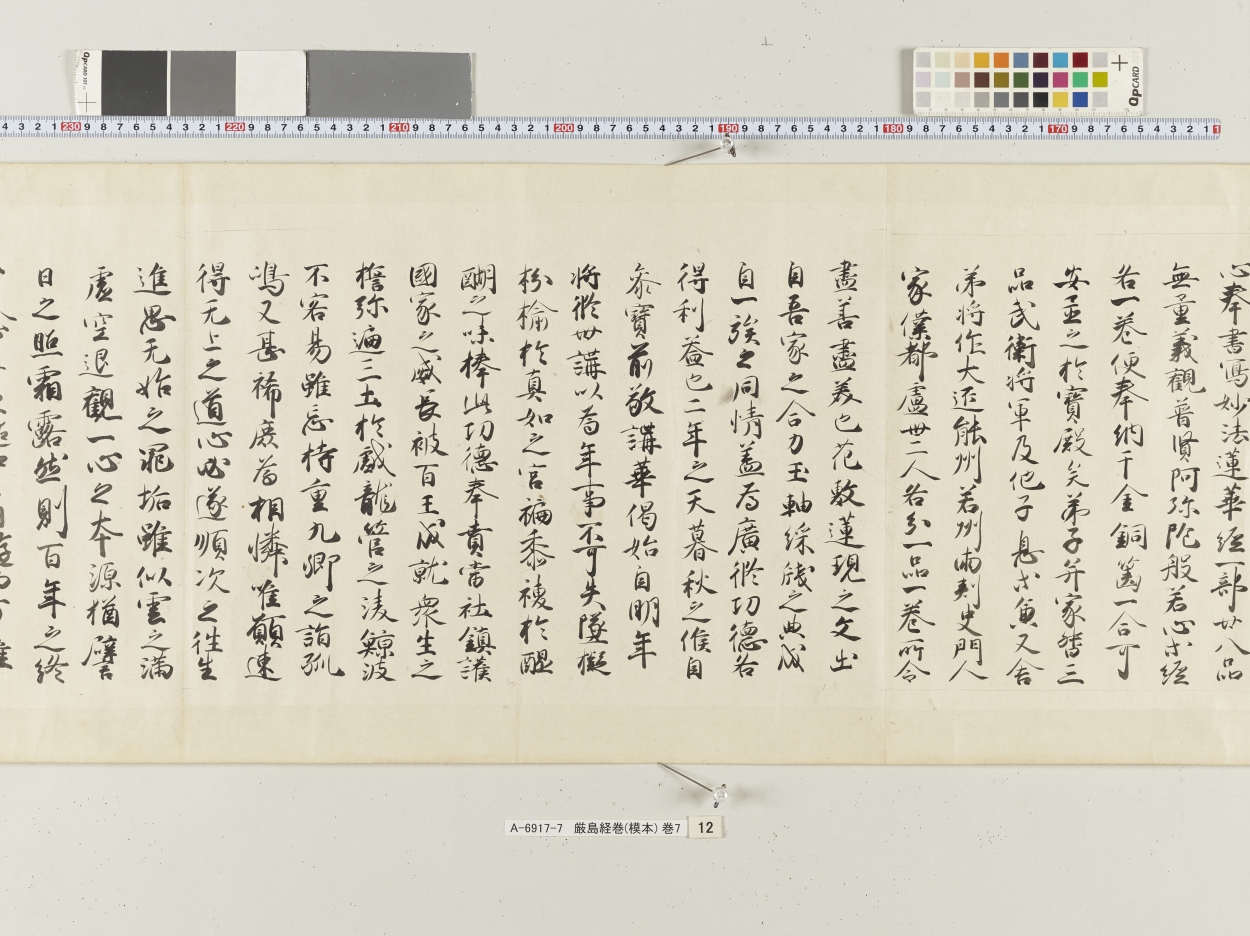 心奉書寫妙法蓮華經一部廿八品
無量義觀普賢阿弥陀般若心等經
各一巻便奉納于金銅篋一合可
安置之於寶殿矣弟子并家督三
品武衛將軍及他子息等兼又舎
弟將作大匠能州若州兩刺史門人
家僕都盧卅二人各分一品一巻所令
盡善盡美也花敷蓮現之文出
自吾家之合力玉軸綵牋之典成
自一族之同情蓋為廣修功德各
得利益也二年之天暮秋之候自
参寶前敬講華偈始自明年
將修卅講以為年事不可失墜擬
枌榆於真如之宮褊黍稷於醍
醐之味捧此功德奉賁當社鎮護
國家之威長被百王成就衆生之
誓弥遍三土於戯龍管之淩鯨波
不容易雖忘持重九卿之詣孤
嶋又甚稀廣為相憐唯願速
得无上之道心必遂順次之往生
進思无始之罪垢雖似雲之滿
虚空退觀一心之本源猶譬
日之照霜露然則百年之終
A-6917-7 厳島経巻(模本) 巻7 12